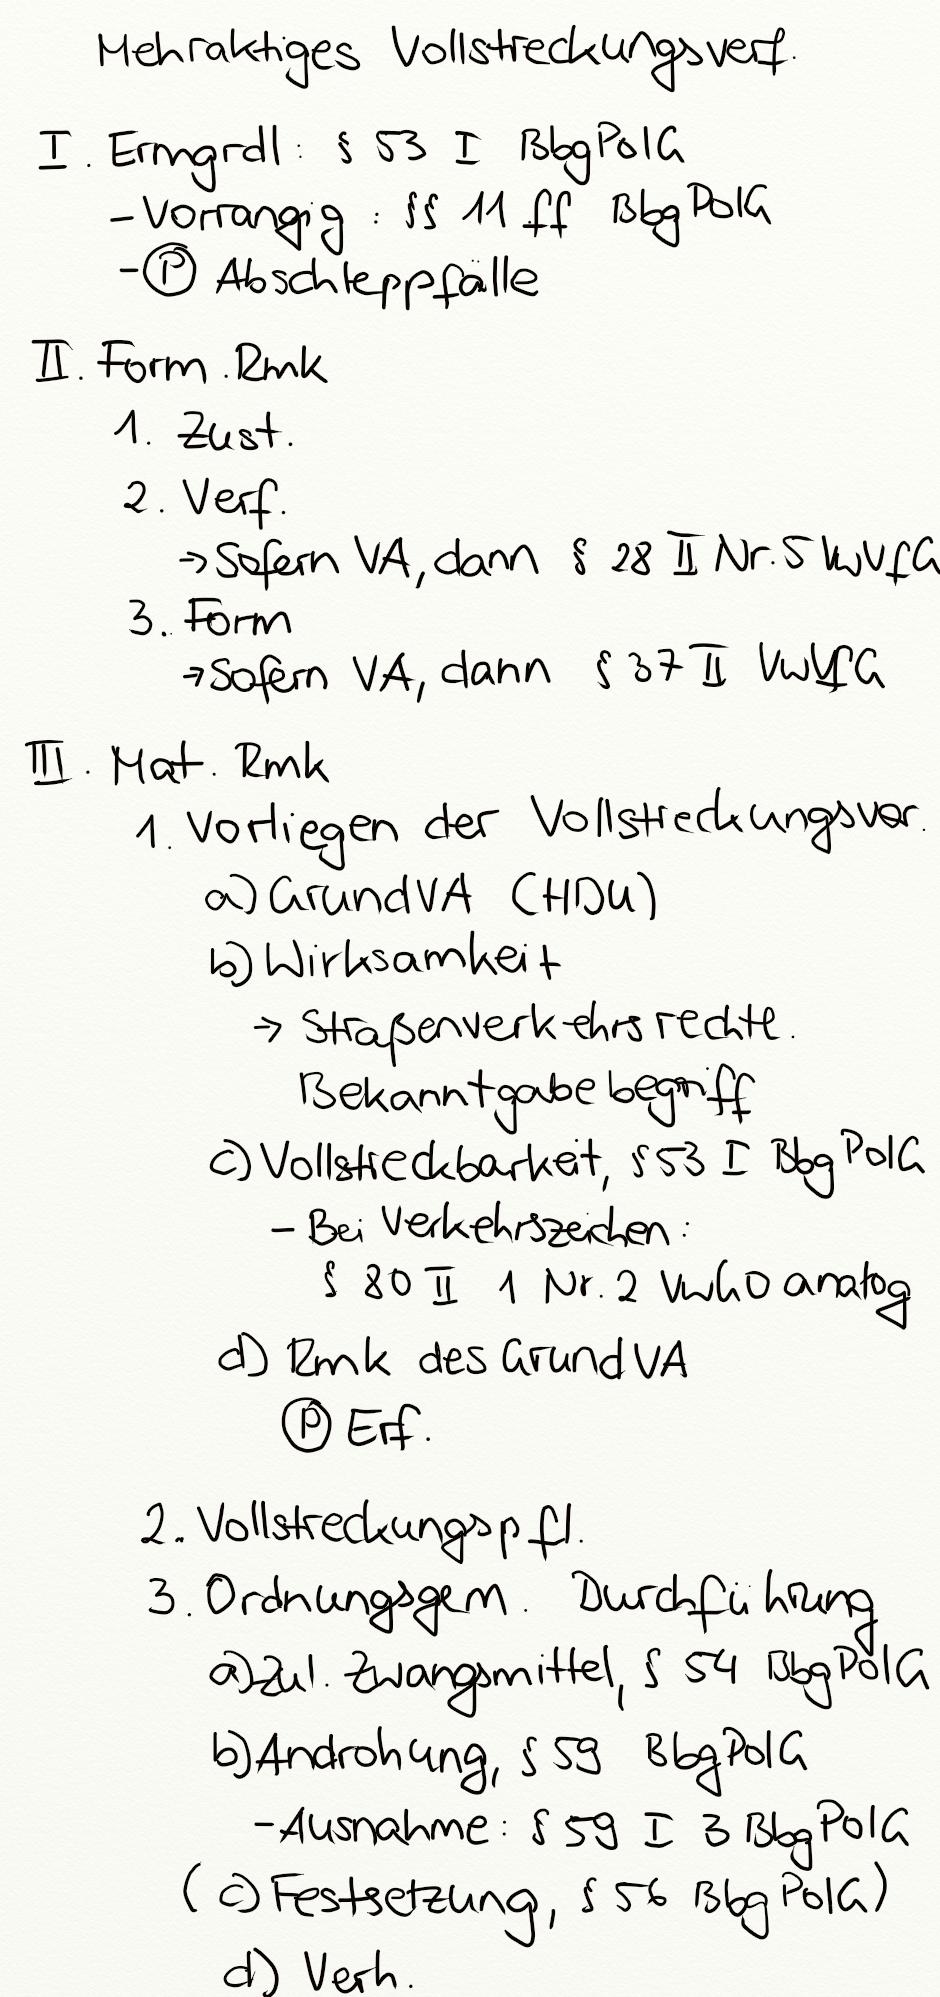 Mehraktiges Vollstreckungsverf.
I. Ermgrdl: § 53 I BbgPolG
- Vorrangig: §§ 11 ff BbgPolG
- Ⓟ Abschleppfälle
II. Form. Rmk
1. Zust.
2. Verf.
→ Sofern VA, dann § 28 II Nr. 5 VwVfG
3. Form
→ Sofern VA, dann § 37 II VwVfG
III. Mat. Rmk
1. Vorliegen der Vollstreckungsvor.
a) GrundVA (HDU)
b) Wirksamkeit
→ Straßenverkehrsrechtl.
Bekanntgabebegriff
c) Vollstreckbarkeit, § 53 I BbgPolG
- Bei Verkehrszeichen:
§ 80 II 1 Nr. 2 VwGO analog
d) Rmk des GrundVA
Ⓟ Erf.
2. Vollstreckungspfl.
3. Ordnungsgem. Durchführung
a) Zul. Zwangsmittel, § 54 BbgPolG
b) Androhung, § 59 BbgPolG
- Ausnahme: § 59 I 3 BbgPolG
(c) Festsetzung, § 56 BbgPolG)
d) Verh.